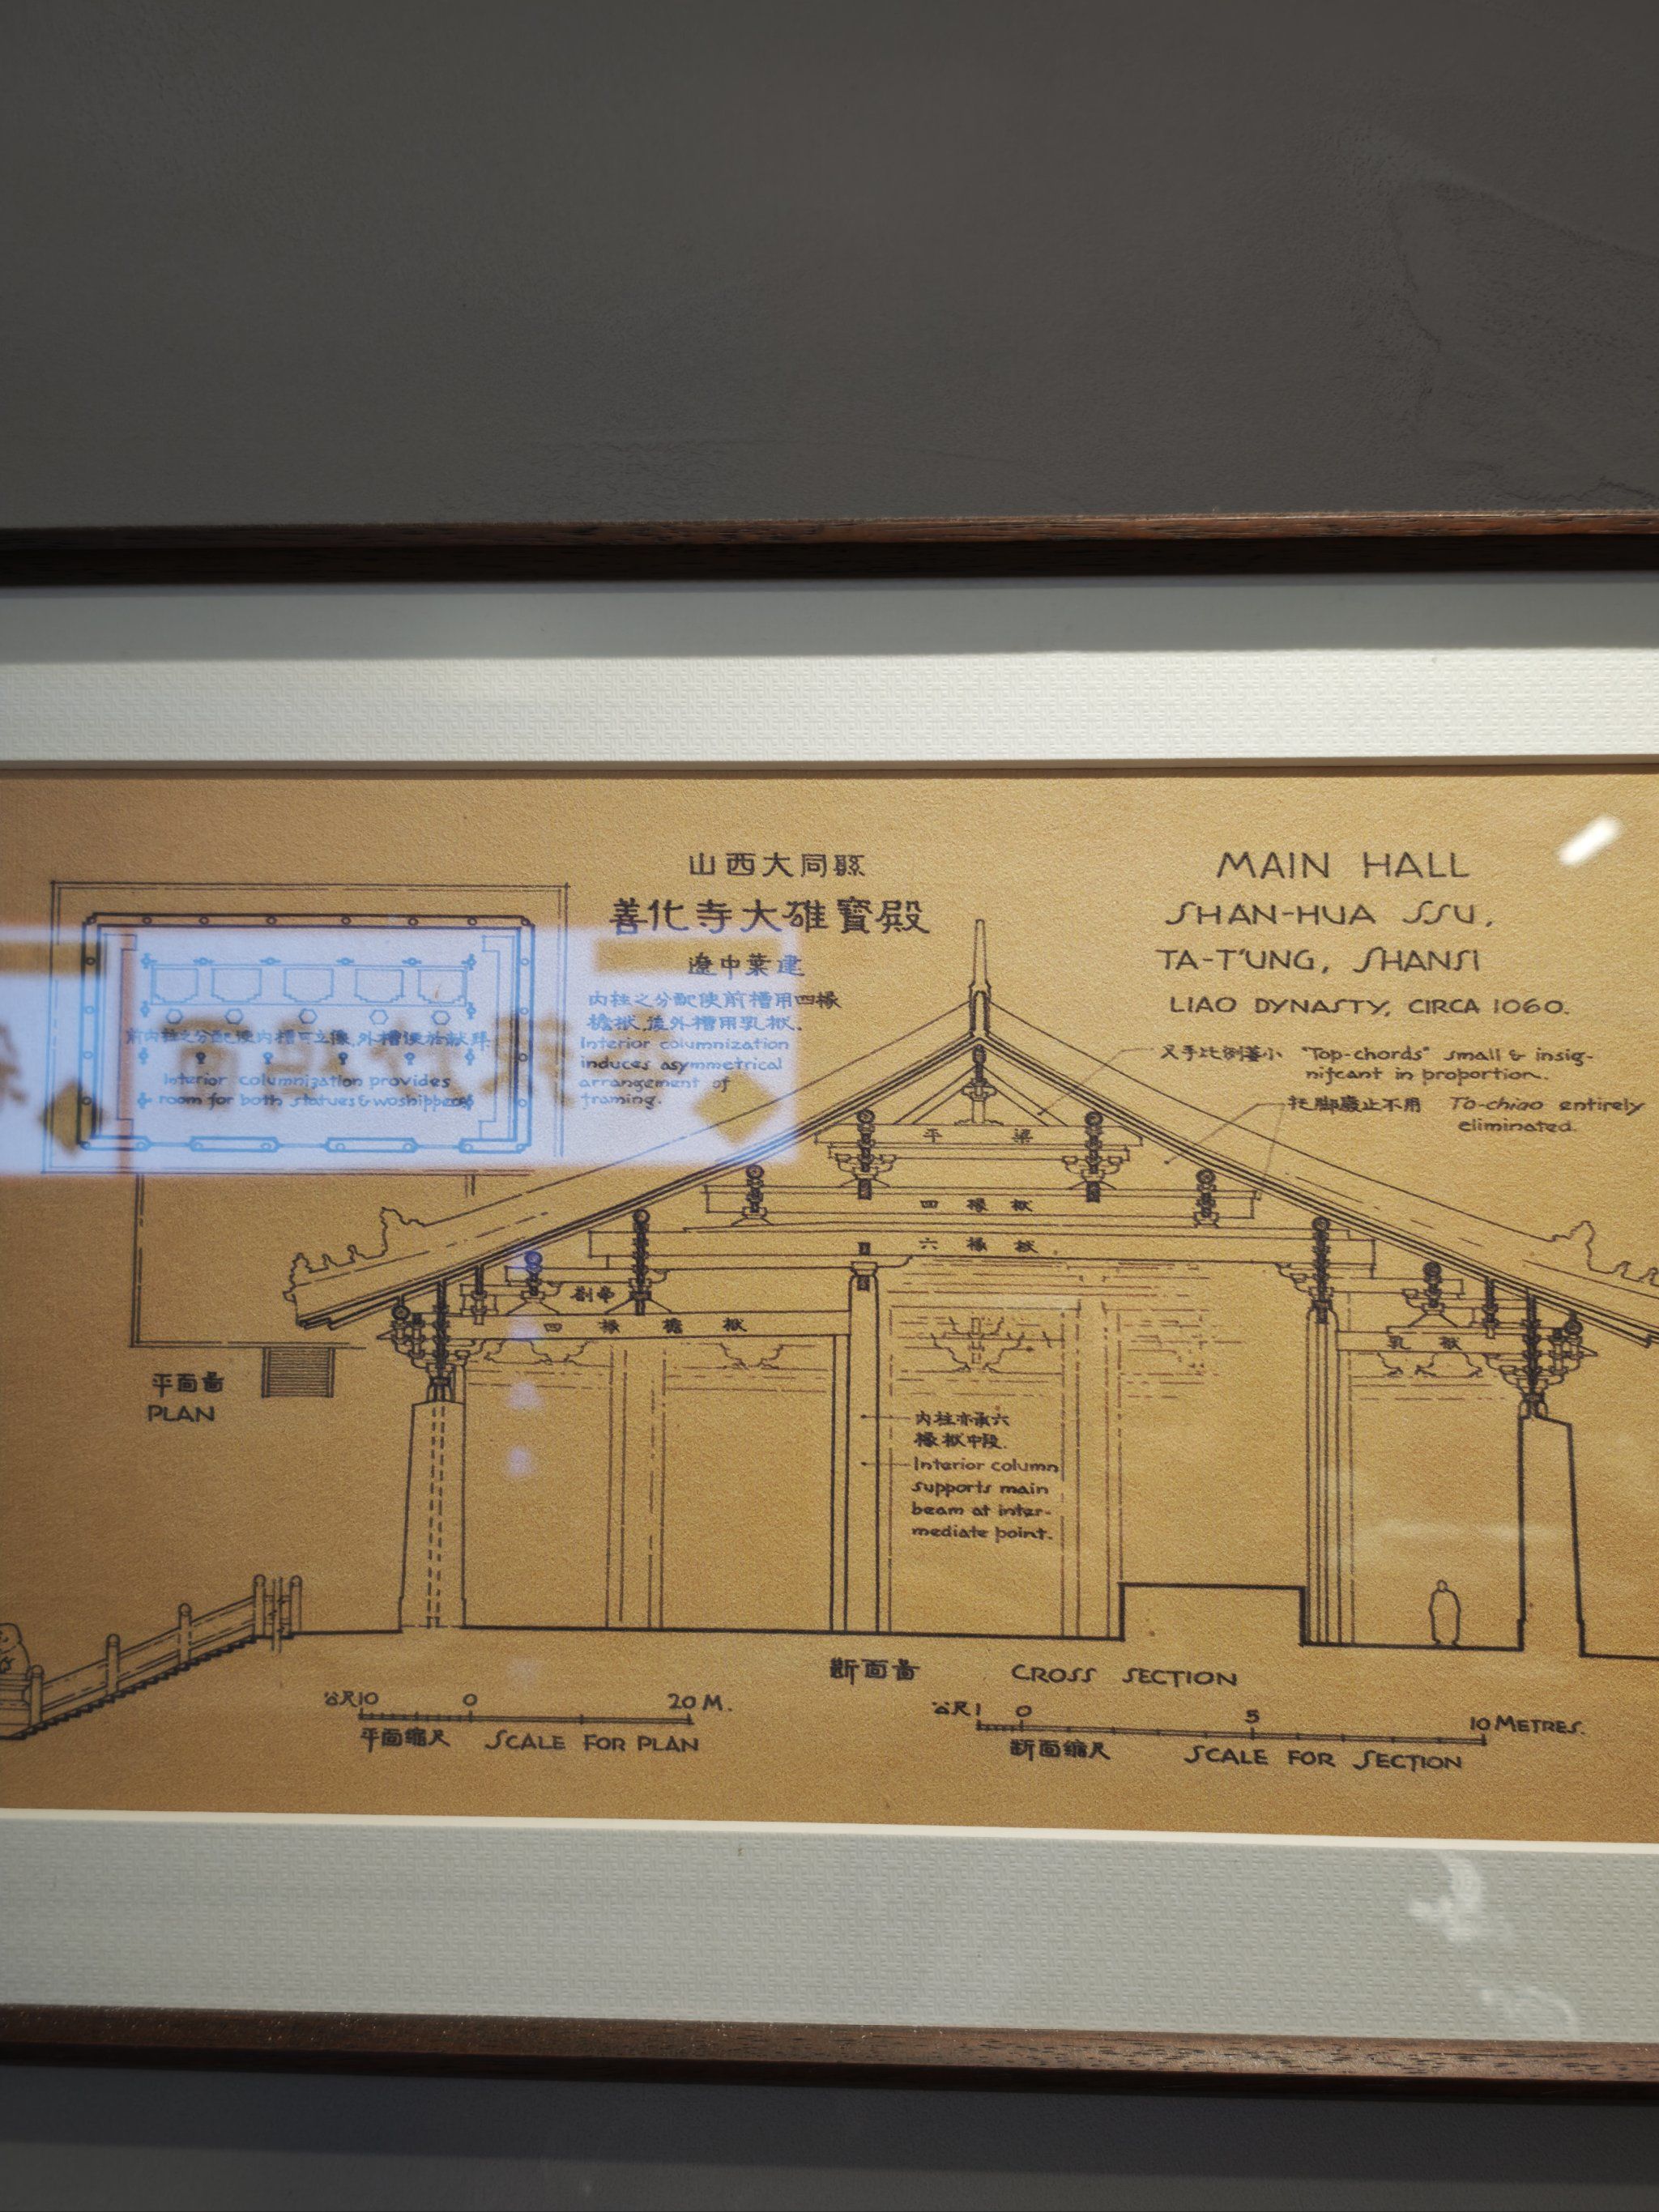 山西大同縣
善化寺大雄寶殿
遼中葉建
內柱之分配使前槽用四椽
檐栿,後外槽用乳栿.
Interior columnization
induces asymmetrical
arrangement of
framing.
MAIN HALL
SHAN-HUA SSU,
TA-T'UNG, SHANSI
LIAO DYNASTY, CIRCA 1060.
叉手比例蓋小 "Top-chords" small & insig-
nifcant in proportion.
托脚廢止不用 To-chiao entirely
eliminated.
前內柱之分配,使內槽可立像,外槽便於献拜
Interior columnization provides
room for both statues & woshippers
平面啚
PLAN
平 梁
四 椽 栿
六 椽 栿
劄牽
四 椽 檐 栿
乳 栿
內柱亦承六
椽栿中段.
Interior column
supports main
beam at inter-
mediate point.
斷面啚 CROSS SECTION
公尺10 0 20 M.
平面縮尺 SCALE FOR PLAN
公尺1 0 5 10 METRES.
斷面縮尺 SCALE FOR SECTION